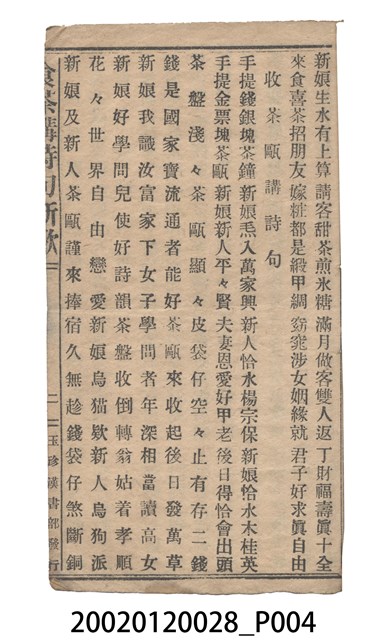 新娘生水有上算　請客甜茶煎氷糖　滿月做客雙人返　丁財福壽眞十全
來食喜茶招朋友　嫁粧都是緞甲綢　窈窕涉女姻緣就　君子好求眞自由
收茶甌講詩句
手提錢銀塊茶鐘　新娘𤆬入萬家興　新人恰水楊宗保　新娘恰水木桂英
手提金票塊茶甌　新娘新人平々賢　夫妻恩愛好甲老　後日得恰會出頭
茶盤淺々茶甌顯々　皮袋仔空々止有存二錢
錢是國家寶流通者能好　茶甌來收起後日發萬草
新娘我識汝富家下女子　學問者年深相當讀高女
新娘好學問兒使好詩韻　茶盤收倒轉翁姑着孝順
花々世界自由戀愛　新娘烏猫欵新人烏狗派
新娘及新人茶甌謹來捧　宿久無趁錢袋仔煞斷銅
食茶講詩句新歌
二
玉珍漢書部發行
20020120028_P004